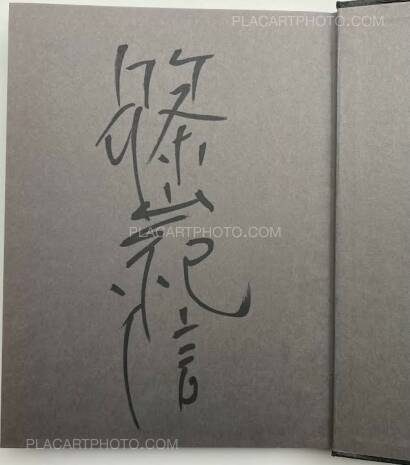 PLACARTPHOTO.COM
篠山紀信
PLACARTPHOTO.COM
PLACARTPHOTO.COM